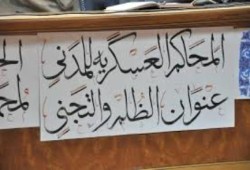 المحاكم العسكرية للمدني
عنوان الظلم والتجني